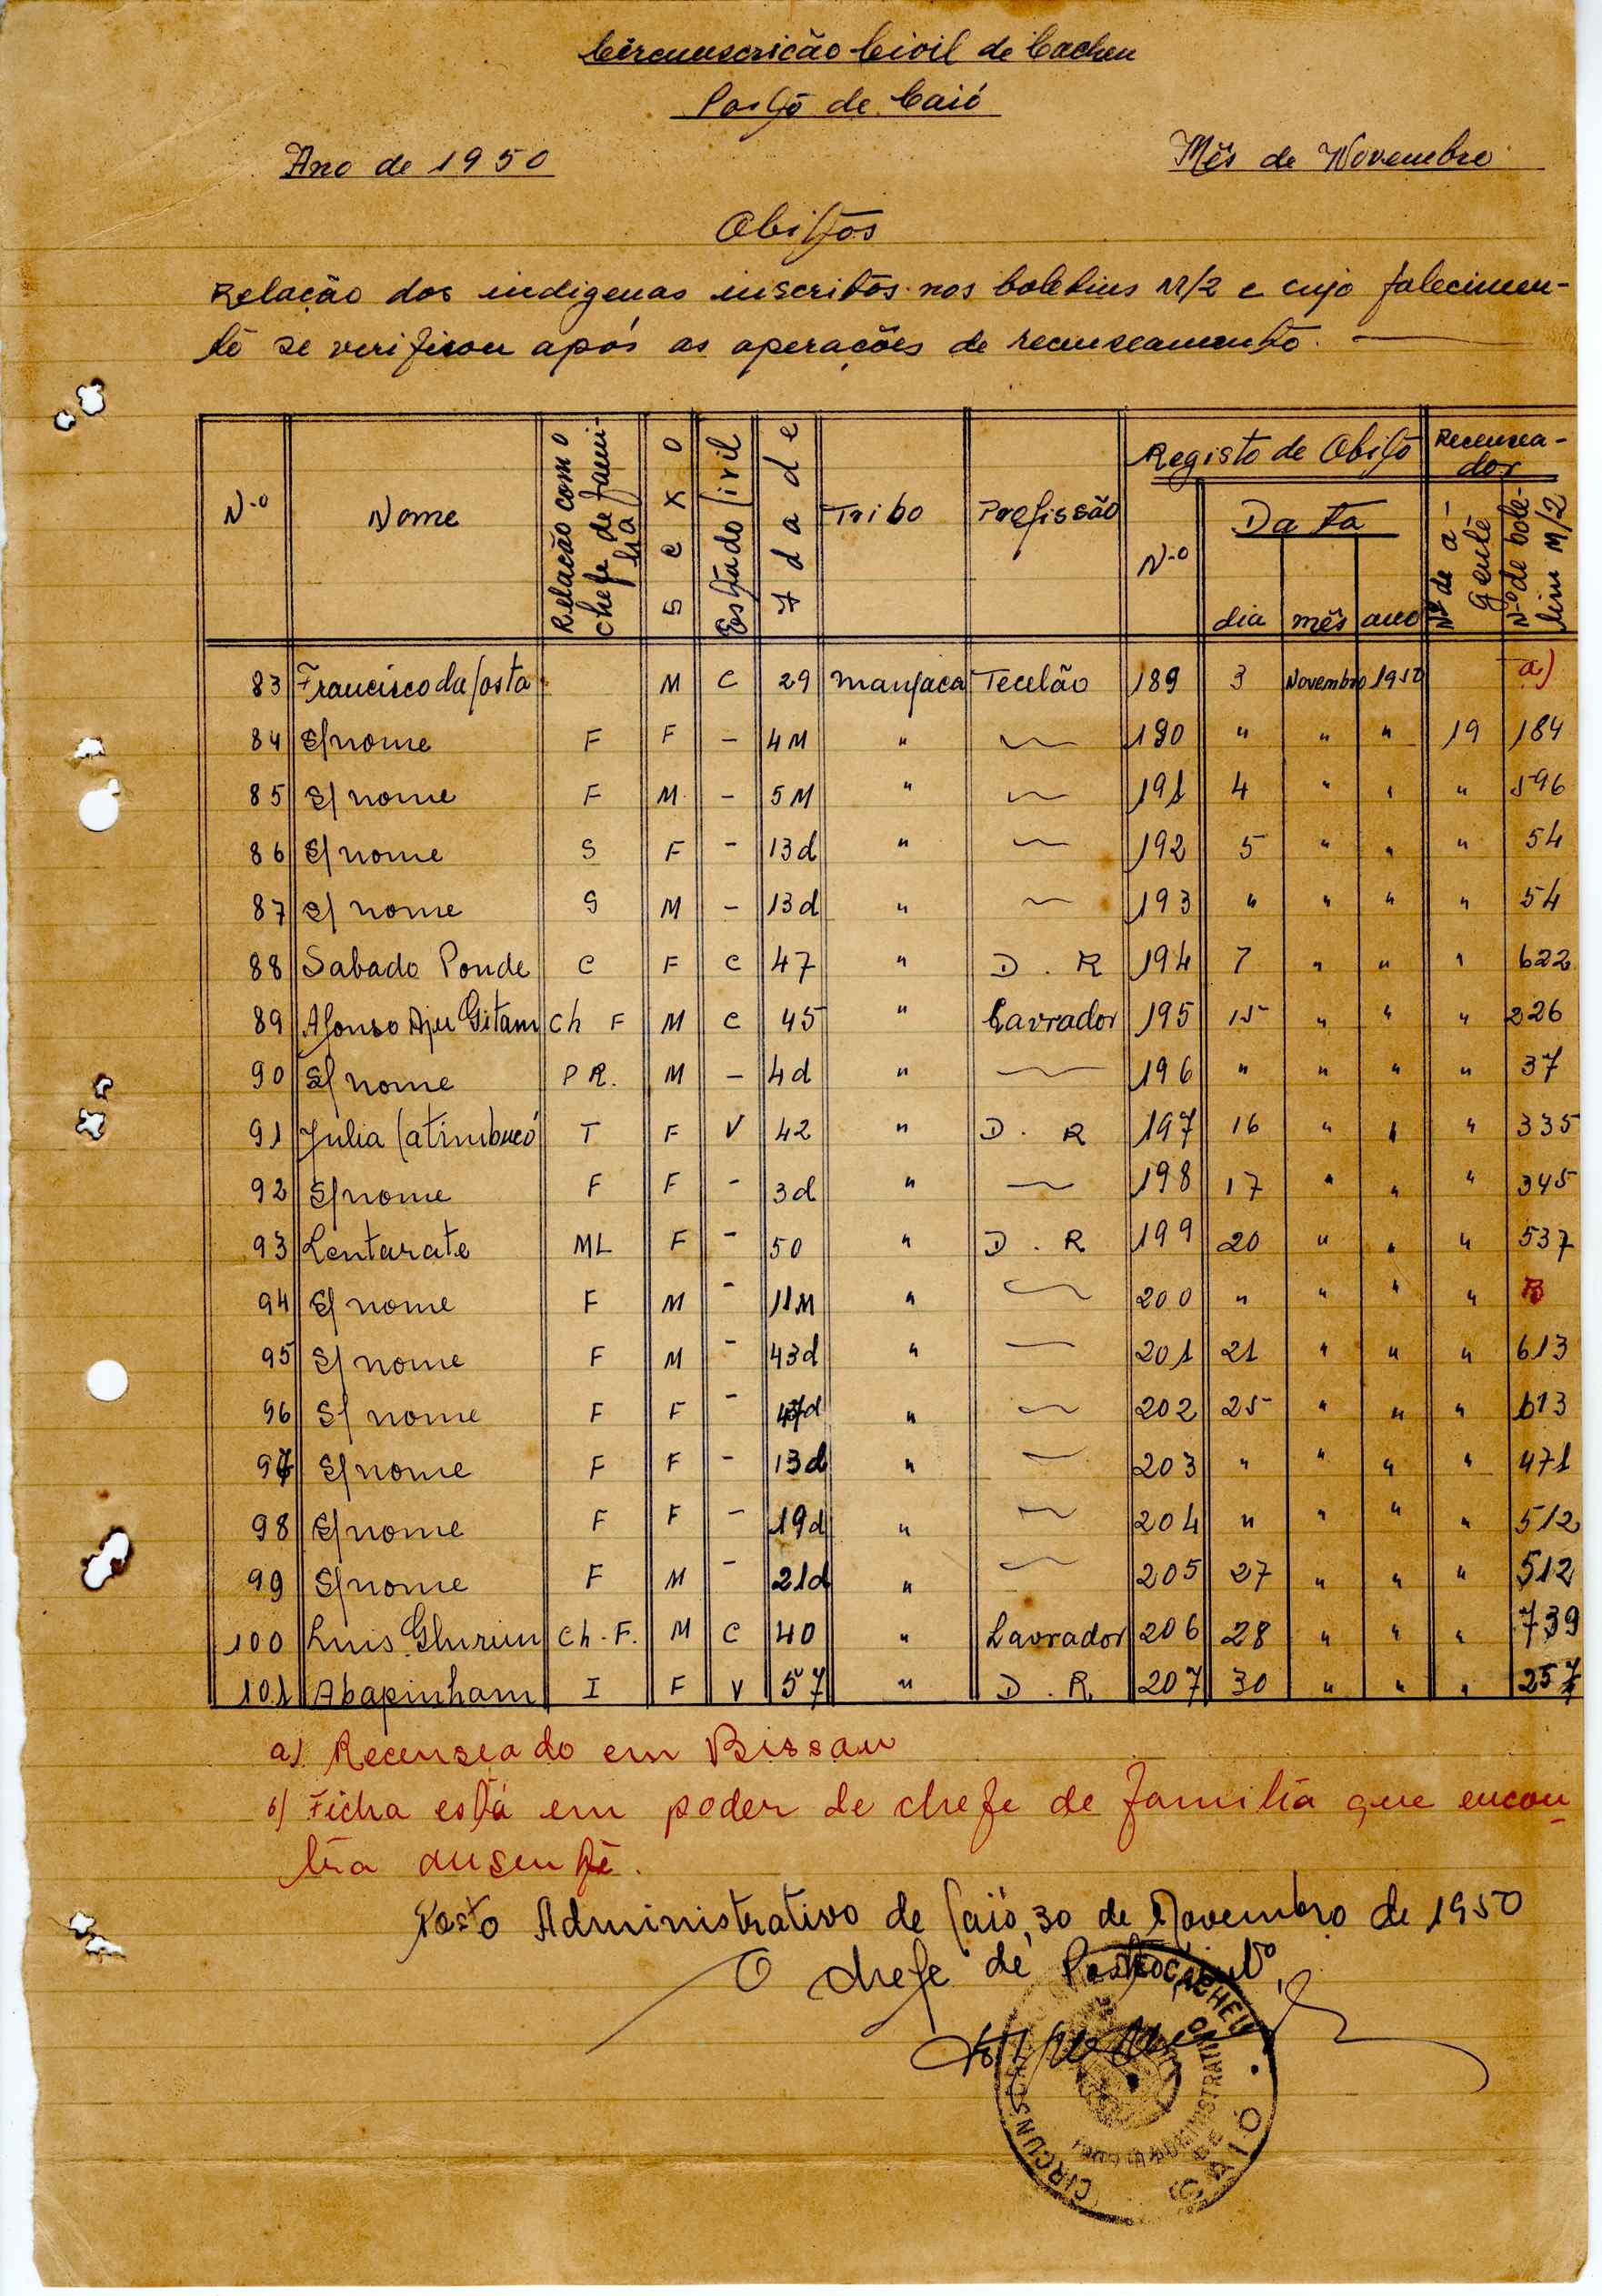 Circunscrição Civil de Cacheu
Posto de Caió
Ano de 1950 Mês de Novembro
Obitos
Relação dos indigenas inscritos nos boletins M/2 e cujo falecimen-
to se verificou após as operações de recenseamento.
N.o Nome Relação com o chefe de fami-lia Sexo Estado Civil Idade Tribo Profissão Registo de Obito Recensea-dor
N.o Data Nº de a-gente N.o de bole-tim M/2
dia mês ano
83 Francisco da Costa M C 29 Manjaca Tecelão 189 3 Novembro 1950 a)
84 S/nome F F - 4M " ~ 190 " " " 19 184
85 S/ nome F M - 5M " ~ 191 4 " " " 596
86 S/ nome S F - 13d " ~ 192 5 " " " 54
87 S/ nome S M - 13d " ~ 193 " " " " 54
88 Sabado Ponde C F C 47 " D. R 194 7 " " " 622
89 Afonso Aju Gitam Ch F M C 45 " Lavrador 195 15 " " " 226
90 S/ nome P R. M - 4d " ~ 196 " " " " 37
91 Julia Catimbucó T F V 42 " D. R 197 16 " " " 335
92 S/nome F F - 3d " ~ 198 17 " " " 345
93 Lentarate ML F - 50 " D. R 199 20 " " " 537
94 S/ nome F M - 11M " ~ 200 " " " " B
95 S/ nome F M - 43d " ~ 201 21 " " " 613
96 S/ nome F F - 47d " ~ 202 25 " " " 613
97 S/nome F F - 13d " ~ 203 " " " " 471
98 S/nome F F - 19d " ~ 204 " " " " 512
99 S/nome F M - 21d " ~ 205 27 " " " 512
100 Luis Ghurum Ch. F. M C 40 " Lavrador 206 28 " " " 739
101 Abapinham I F V 57 " D. R. 207 30 " " " 257
a) Recenseado em Bissau
b) Ficha está em poder de chefe de familia que encon-
tra ausente.
Posto Administrativo de Caió, 30 de Novembro de 1950
O chefe de Posto,
CIRCUNS CACHEU
ADMINISTRATIVO DE CAIÓ